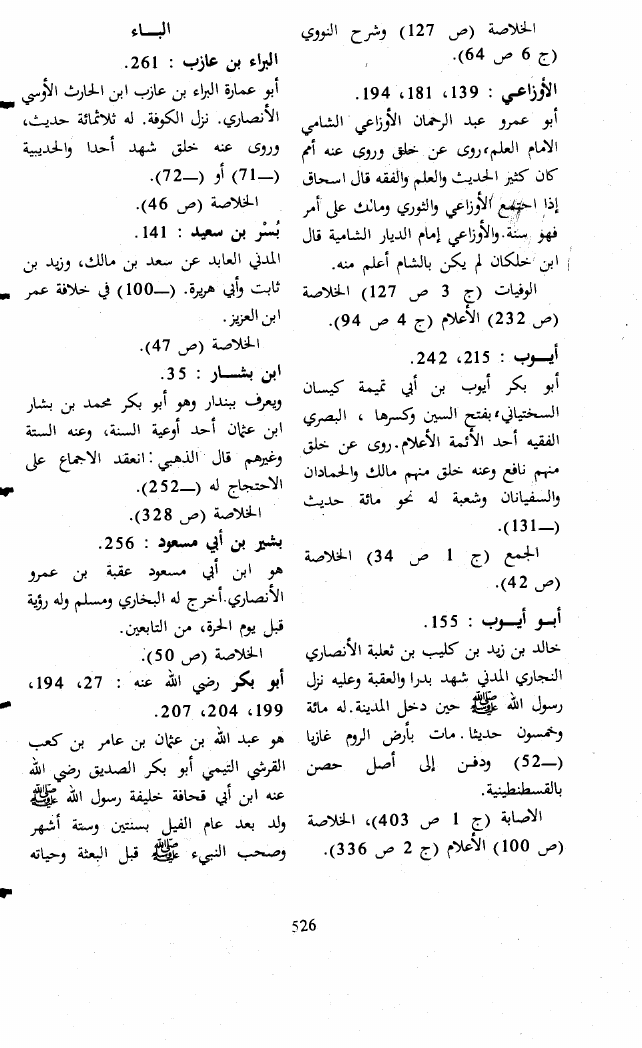 الخلاصة (ص 127) وشرح النووي
(ج 6 ص 64).
الأوزاعي : 139، 181، 194.
أبو عمرو عبد الرحمان الأوزاعي الشامي
الامام العلم، روى عن خلق وروى عنه أمم
كان كثير الحديث والعلم والفقه قال اسحاق
إذا اجتمع الأوزاعي والثوري ومالك على أمر
فهو سنة. والأوزاعي إمام الديار الشامية قال
ابن خلكان لم يكن بالشام أعلم منه.
الوفيات (ج 3 ص 127) الخلاصة
(ص 232) الأعلام (ج 4 ص 94).
أيـوب : 215، 242.
أبو بكر أيوب بن أبي تميمة كيسان
السختياني، بفتح السين وكسرها ، البصري
الفقيه أحد الأئمة الأعلام. روى عن خلق
منهم نافع وعنه خلق منهم مالك والحمادان
والسفيانان وشعبة له نحو مائة حديث
(—131).
الجمع (ج 1 ص 34) الخلاصة
(ص 42).
أبـو أيـوب : 155.
خالد بن زيد بن كليب بن ثعلبة الأنصاري
النجاري المدني شهد بدرا والعقبة وعليه نزل
رسول الله ﷺ حين دخل المدينة. له مائة
وخمسون حديثا. مات بأرض الروم غازيا
(—52) ودفـن إلى أصل حصن
بالقسطنطينية.
الاصابة (ج 1 ص 403)، الخلاصة
(ص 100) الأعلام (ج 2 ص 336).
البـــاء
البراء بن عازب : 261.
أبو عمارة البراء بن عازب ابن الحارث الأوسي
الأنصاري. نزل الكوفة. له ثلاثمائة حديث،
وروى عنه خلق شهد أحدا والحديبية
(—71) أو (—72).
الخلاصة (ص 46).
بُسْر بن سعيد : 141.
المدني العابد عن سعد بن مالك، وزيد بن
ثابت وأبي هريرة. (—100) في خلافة عمر
ابن العزيز.
الخلاصة (ص 47).
ابن بشـار : 35.
ويعرف ببندار وهو أبو بكر محمد بن بشار
ابن عثمان أحد أوعية السنة، وعنه الستة
وغيرهم قال الذهبي : انعقد الاجماع على
الاحتجاج له (—252).
الخلاصة (ص 328).
بشير بن أبي مسعود : 256.
هو ابن أبي مسعود عقبة بن عمرو
الأنصاري. أخرج له البخاري ومسلم وله رؤية
قبل يوم الحرة، من التابعين.
الخلاصة (ص 50).
أبو بكر رضي الله عنه : 27، 194،
199، 204، 207.
هو عبد الله بن عثمان بن عامر بن كعب
القرشي التيمي أبو بكر الصديق رضي الله
عنه ابن أبي قحافة خليفة رسول الله ﷺ
ولد بعد عام الفيل بسنتين وستة أشهر
وصحب النبيء ﷺ قبل البعثة وحياته
526